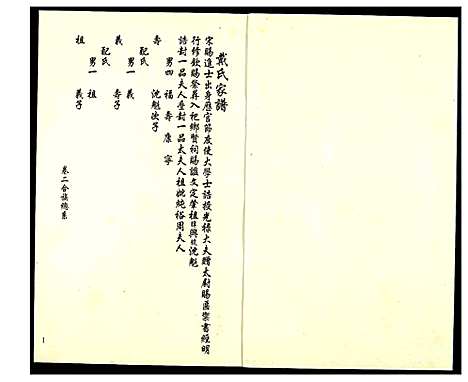 戴氏家譜
宋賜進士出身歷官節度使大學士誥授光祿大夫贈太尉賜區崇書經明
行修欽賜祭葬入祀鄉賢祠賜謚文定肇祖日興沈魁
誥封一品夫人疊封一品太夫人祖妣純裕周夫人
男四 福 壽 康 寧
壽 沈魁次子
配氏
男一 義
義 壽子
配氏
男一 祖
祖 義子
卷二合族總系
1